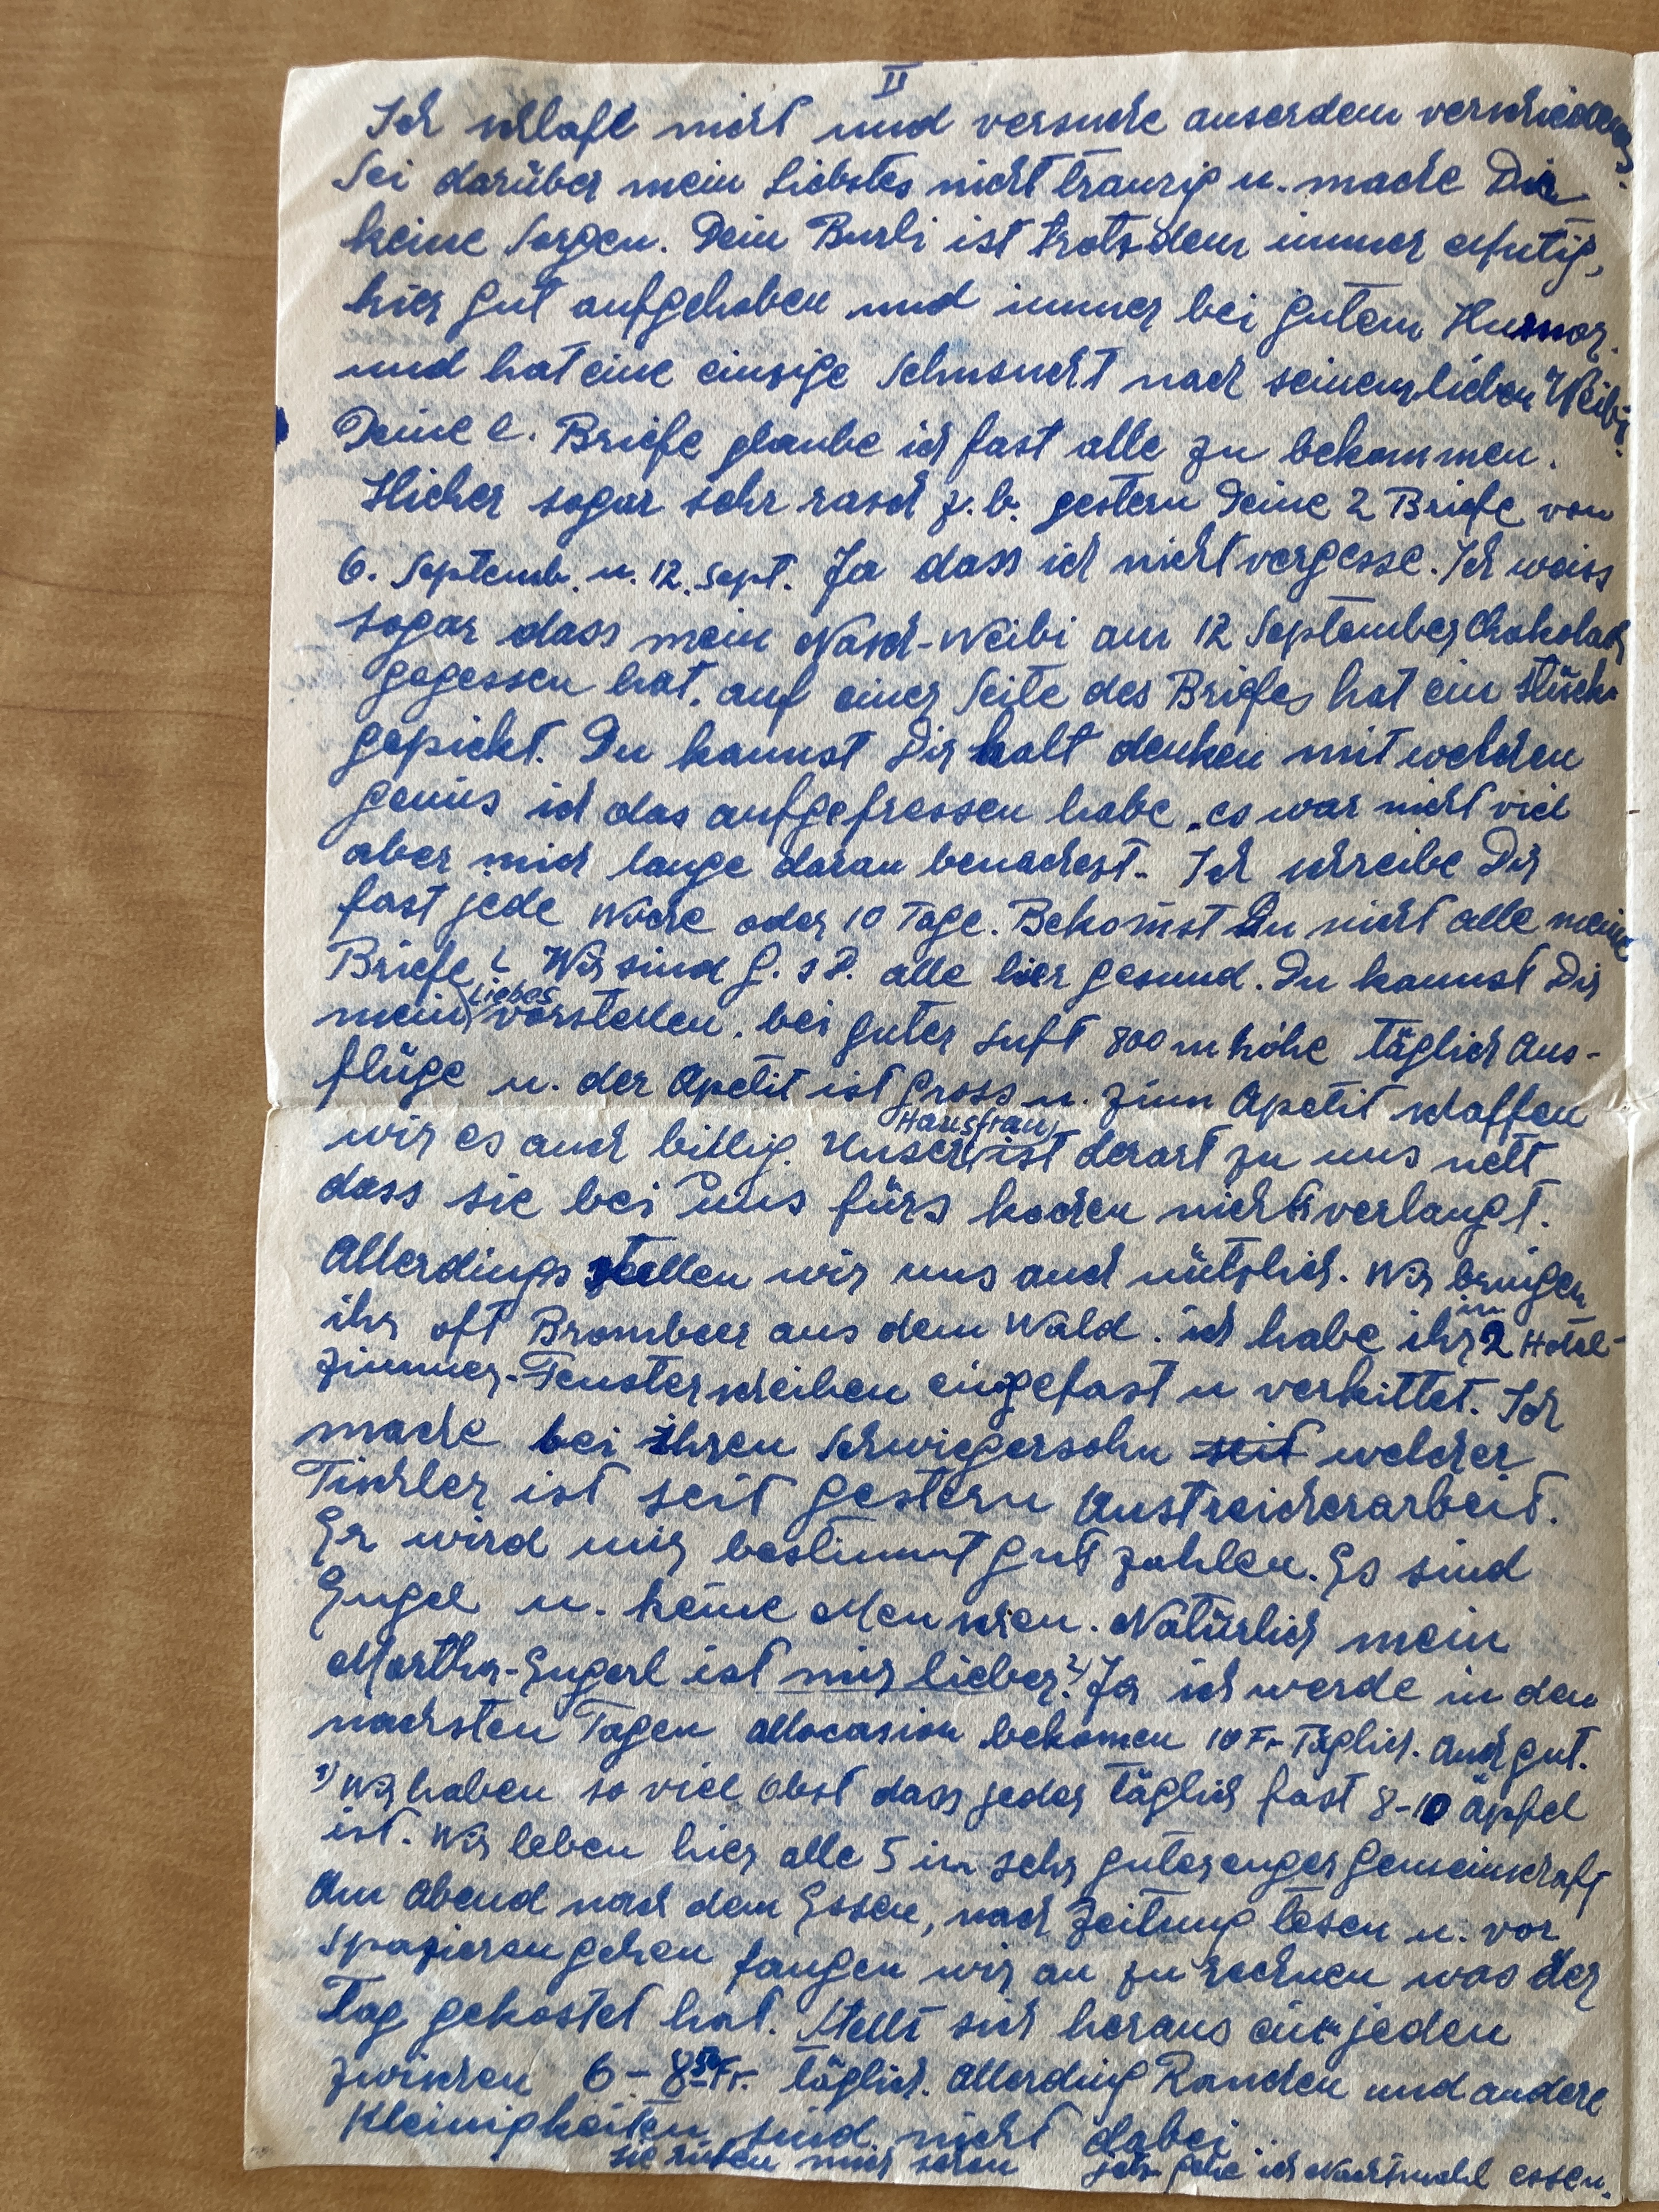 II
Ich schlafe nicht und versuche auserdem verschiedenes.
Sei darüber mein Liebstes nicht traurig u. mache Dir
keine Sorgen. Dein Burli ist trotzdem immer
hier gut aufgehoben und immer bei gutem Humor.
und hat eine einzige Sehnsucht nach seinem lieben Weibi.
Deine l. Briefe glaube ich fast alle zu bekommen.
Hieher sogar sehr rasch z. b. gestern Deine 2 Briefe von
6. Septemb. u. 12. Sept. Ja dass ich nicht vergesse. Ich weiss
sogar dass mein Nasch-Weibi am 12 September Chokolade
gegessen hat. auf einer Seite des Briefes hat ein Stück
gepickt. Du kannst Dir halt denken mit welchen
genus ich das aufgefressen habe. es war nicht viel
aber mich lange daran Ich schreibe Dir
fast jede Woche oder 10 Tage. Bekomst Du nicht alle meine
Briefe? Wir sind G. s D. alle hier gesund. Du kannst Dir
mein Liebes vorstellen. bei guter Luft 800 m höhe täglich Aus-
flüge u. der Apetit ist gross u. zum Apetit schaffen
wir es auch billig. Unsere Hausfrau ist derart zu uns nett
dass sie bei uns fürs kochen nichts verlangt.
Allerdings stellen wir uns auch nützlich. Wir bringen
ihr oft Brombeer aus dem Wald. ich habe ihr in 2 Hotel-
zimmer-Fensterscheiben eingefast u verkittet. Ich
mache bei ihren Schwiegersohn seit welcher
Tischler ist seit gestern Anstreicherarbeit.
Er wird mir bestimmt gut zahlen. Es sind
Engel u. keine Menschen. Natürlich mein
Martha-Engerl ist mir lieber. 2) Ja ich werde in den
nachsten Tagen allocasion bekomen 10 Fr. Täglich. Auch gut.
1) Wir haben so viel Obst dass jeder täglich fast 8-10 äpfel
ist. Wir leben hier alle 5 in sehr guter enger gemeinschaft
Am Abend nach dem Essen, nach Zeitung lesen u. vor
spazierengehen fangen wir an zu rechnen was der
Tag gekostet hat. Stellt sich heraus ein jeden
zwischen 6 - 8 50 Fr. täglich. Allerding Rauchen und andere
Kleinigkeiten sind nicht dabei
sie rufen mich schon jetz gehe ich Nachtmahl essen.